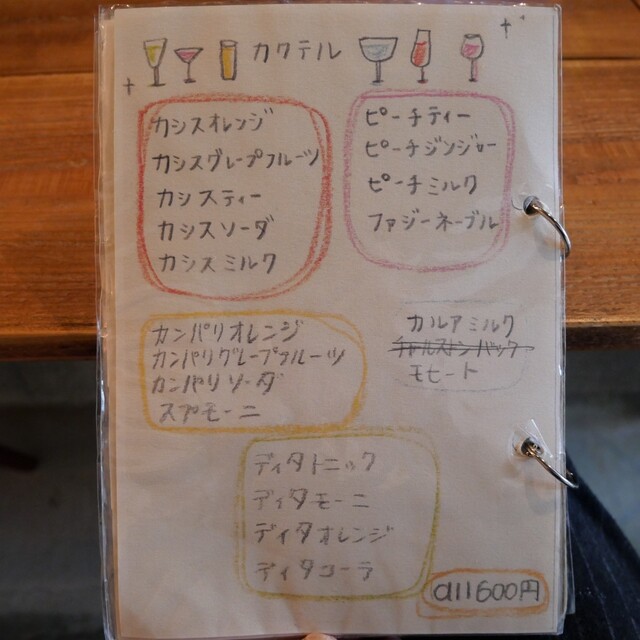 カクテル
カシスオレンジ
カシスグレープフルーツ
カシスティー
カシスソーダ
カシスミルク
ピーチティー
ピーチジンジャー
ピーチミルク
ファジーネーブル
カンパリオレンジ
カンパリグレープフルーツ
カンパリソーダ
スプモーニ
カルアミルク
モヒート
ディタトニック
ディタモーニ
ディタオレンジ
ディタコーラ
all600円